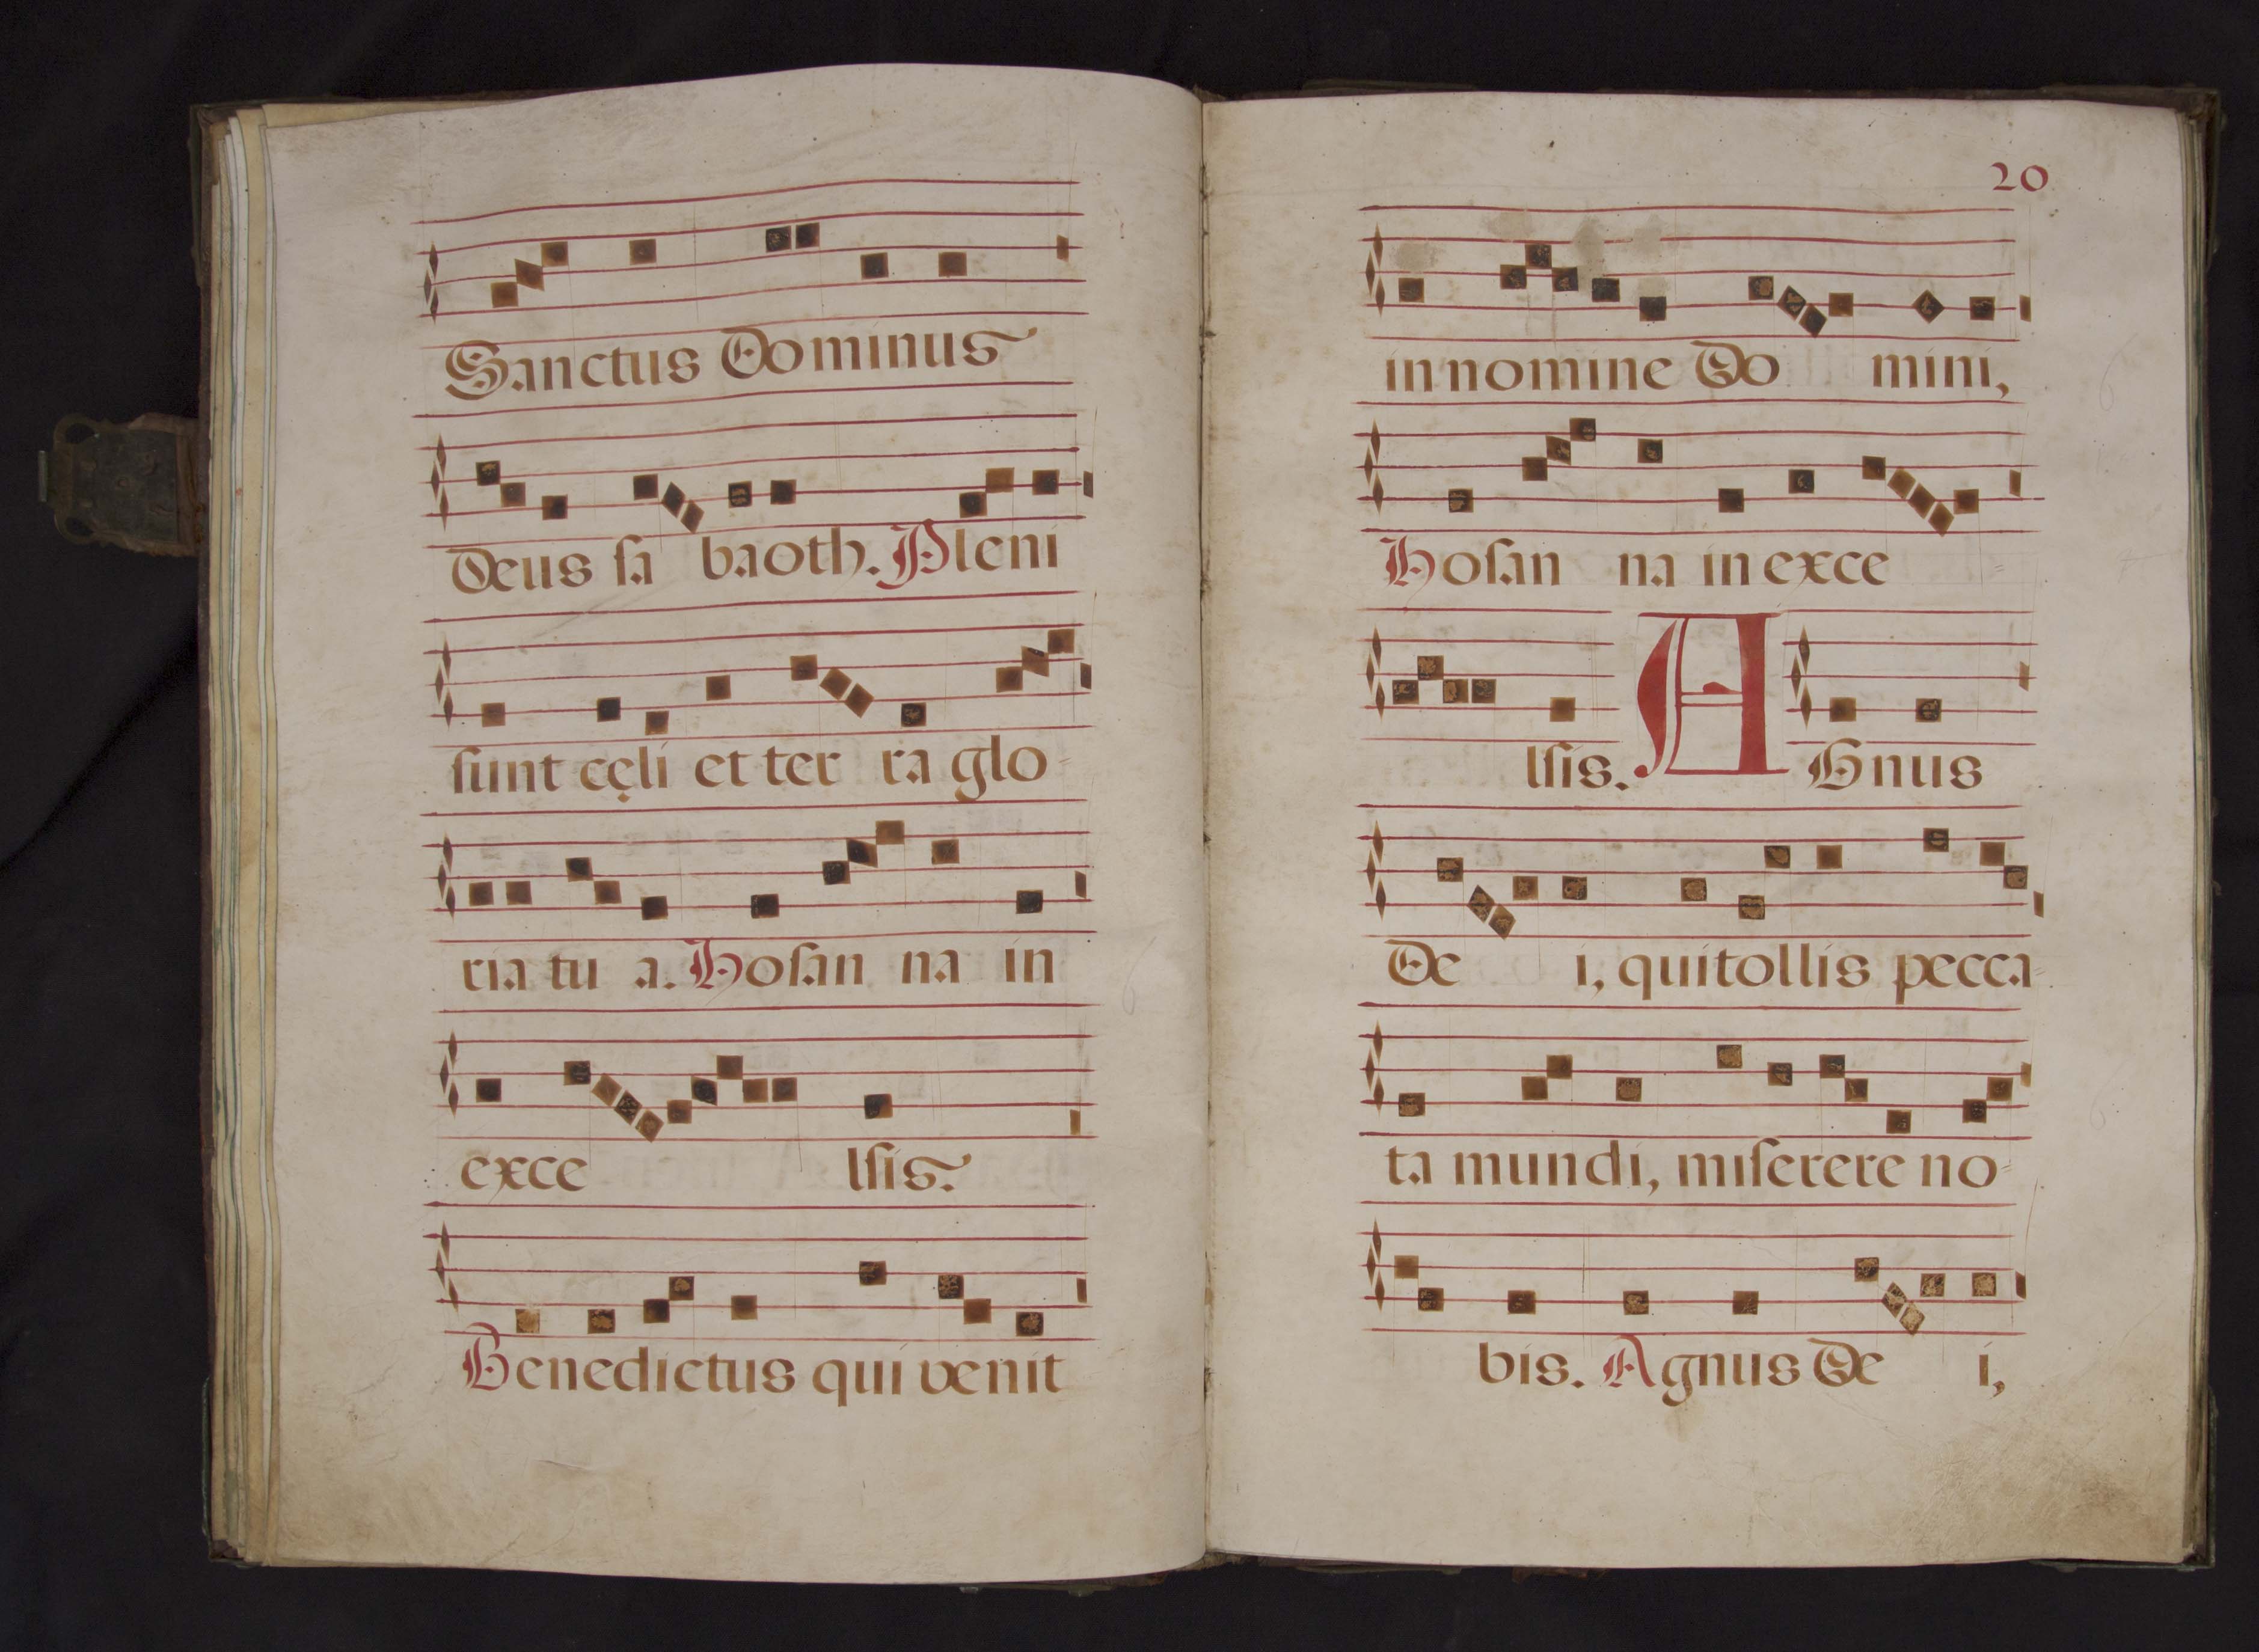 Sanctus Dominus
Deus ſa baoth. Pleni
ſunt cęli et ter ra glo-
ria tu a. Hoſan na in
exce lſis.
Benedictus qui venit
20
in nomine Do mini,
Hoſan na in exce
lſis. A Gnus
De i, qui tollis pecca-
ta mundi, miſerere no-
bis. Agnus De i,